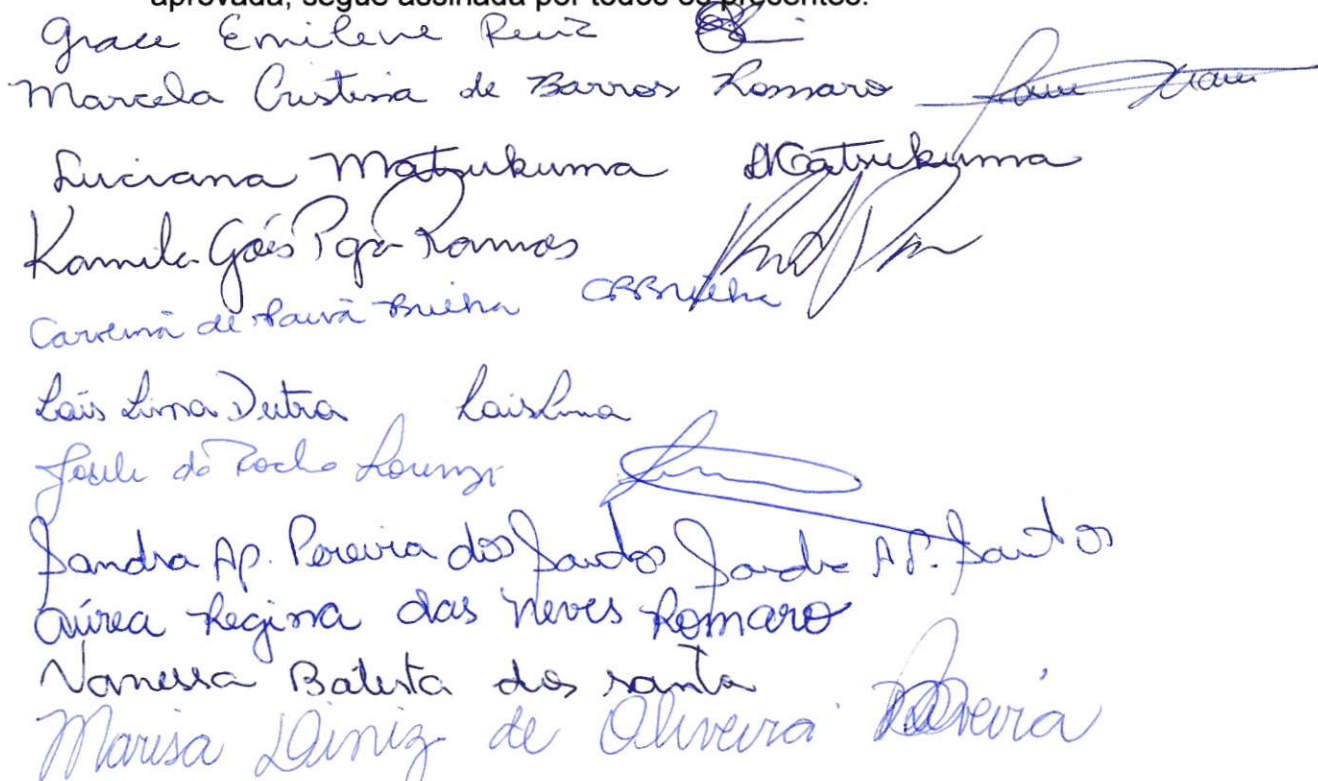 aprovada, segue assinada por todos os presentes.
Grace Emilene Ruiz
Marcela Cristina de Barros Romaro
Luciana Matsukuma LMatsukuma
Kamila Goés Ramos
de Paiva Brilha CPBrilha
Laís Lima Dutra Lais Lima
Josele da Rocha Lourenzi
Sandra Ap. Pereira dos Santos Sandra Ap. Santos
Aúrea Regina das Neves Romaro
Vanessa Batista dos Santos
Marisa Diniz de Oliveira